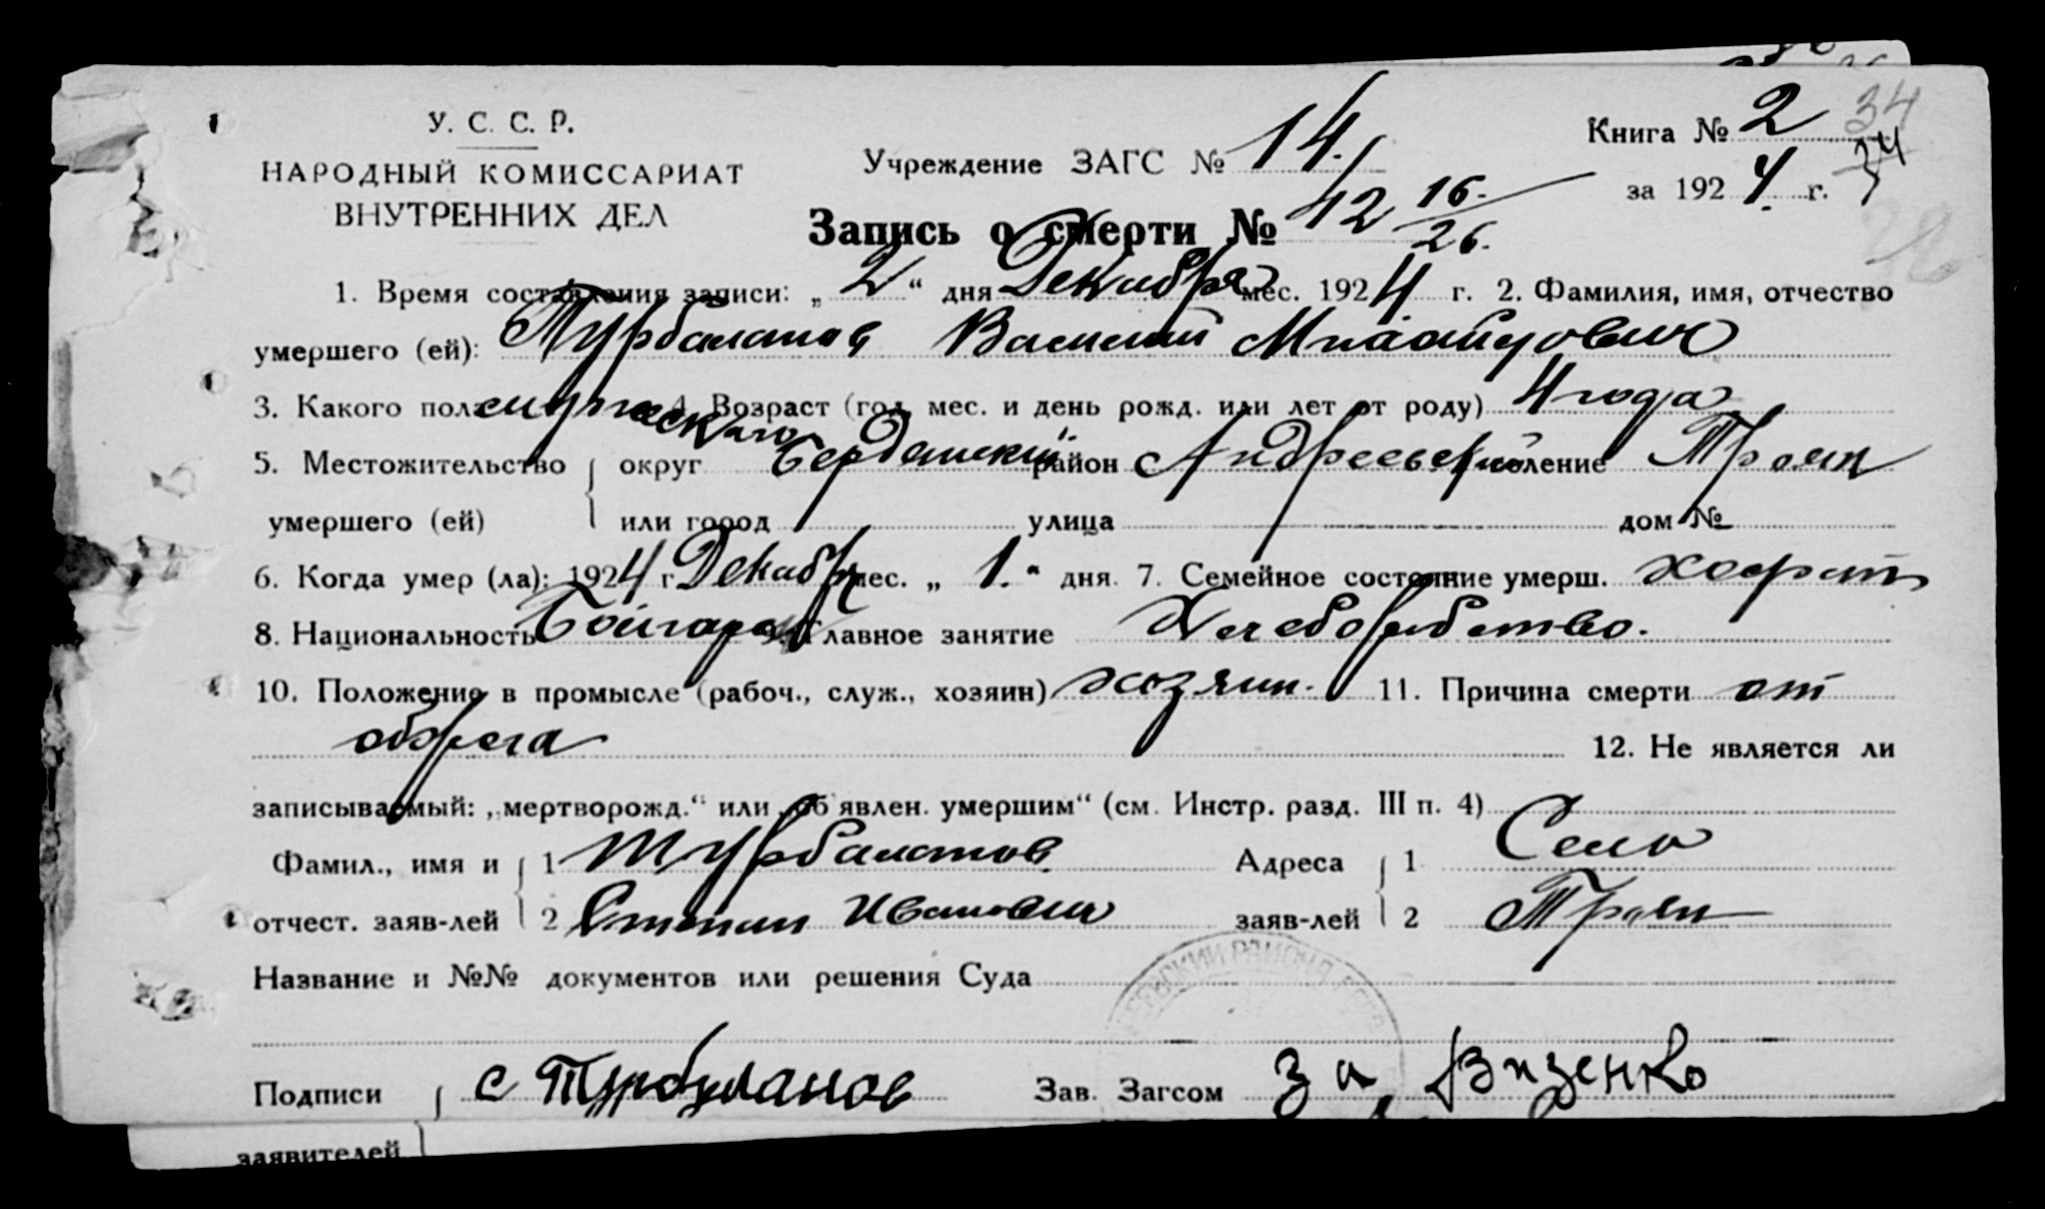 У. С. С. Р.
НАРОДНЫЙ КОМИССАРИАТ
ВНУТРЕННИХ ДЕЛ
Учреждение ЗАГС № 14.
Книга № 2
34
за 1924. г.
Запись о смерти № 42 16/26.
1. Время составления записи: „2“ дня Декабря мес. 1924 г. 2. Фамилия, имя, отчество
умершего (ей): Турбаланов Василий
3. Какого пола мужеского 4. Возраст (год, мес. и день рожд. или лет от роду) 4 года
5. Местожительство округ Бердянский район Андреевский селение Троян
умершего (ей) или город улица дом №
6. Когда умер (ла): 1924 г. Декабр мес. „1.“ дня. 7. Семейное состояние умерш. холост
8. Национальность Болгарин Главное занятие Хлеборобство.
10. Положение в промысле (рабоч., служ., хозяин) хозяин. 11. Причина смерти от
12. Не является ли
записываемый: „мертворожд.“ или „об'явлен. умершим“ (см. Инстр. разд. III п. 4)
Фамил., имя и 1 Турбаланов Адреса 1 Село
отчест. заяв-лей 2 Степан Иванович заяв-лей 2 Троян
Название и №№ документов или решения Суда
Подписи С Турбуланов Зав. Загсом За
заявителей